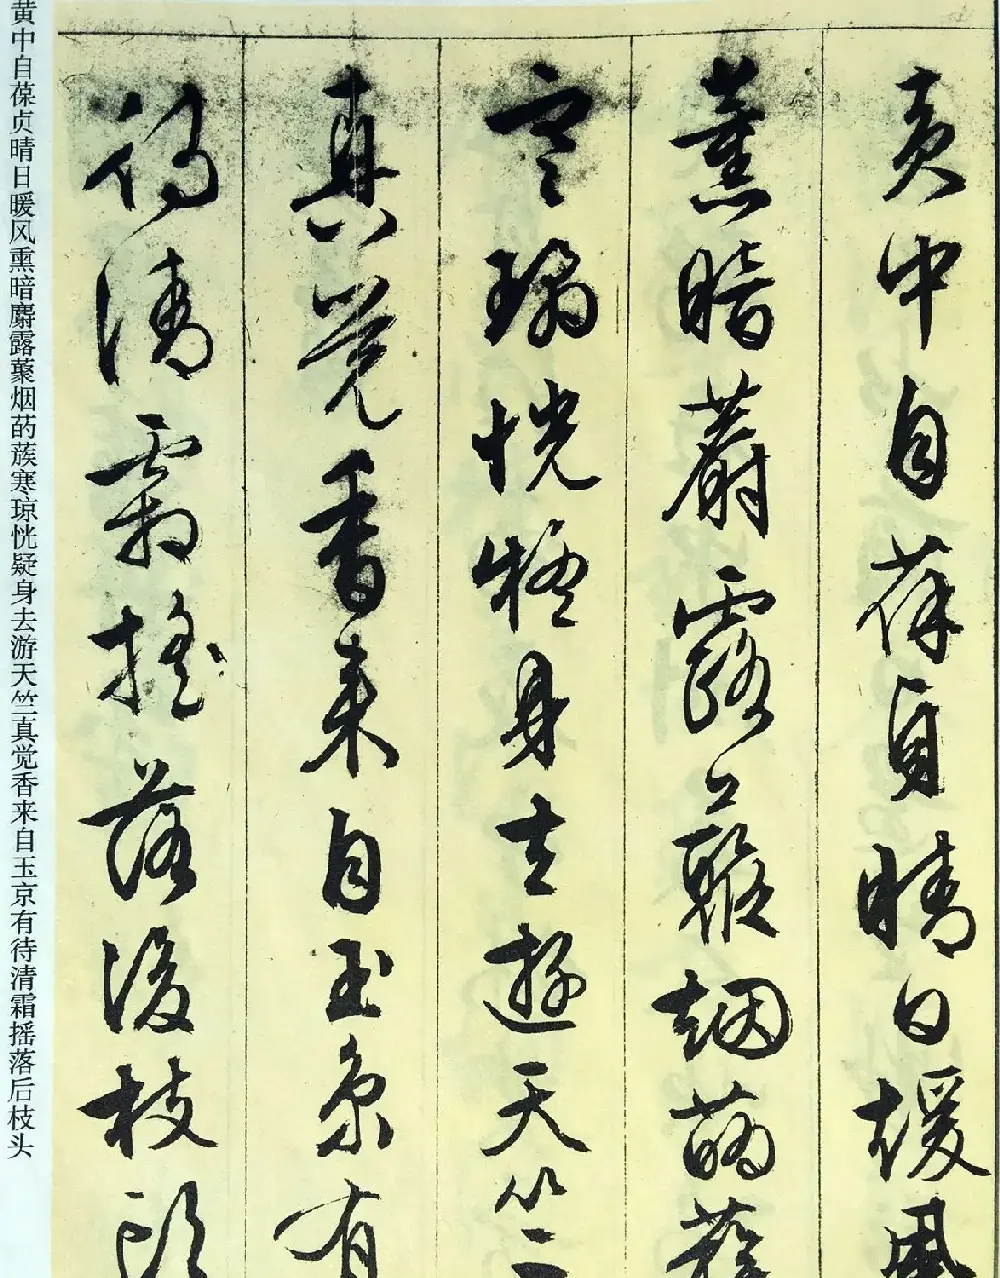 黄中自葆贞晴日暖风熏暗麝露蘂烟药蔟寒琼恍疑身去游天竺真觉香来自玉京有待清霜摇落后枝头
黄中自葆貞晴日暖風
熏暗麝露蘂烟葯蔟
寒瓊恍疑身去遊天竺
真覺香来自玉京有
待清霜搖落後枝頭